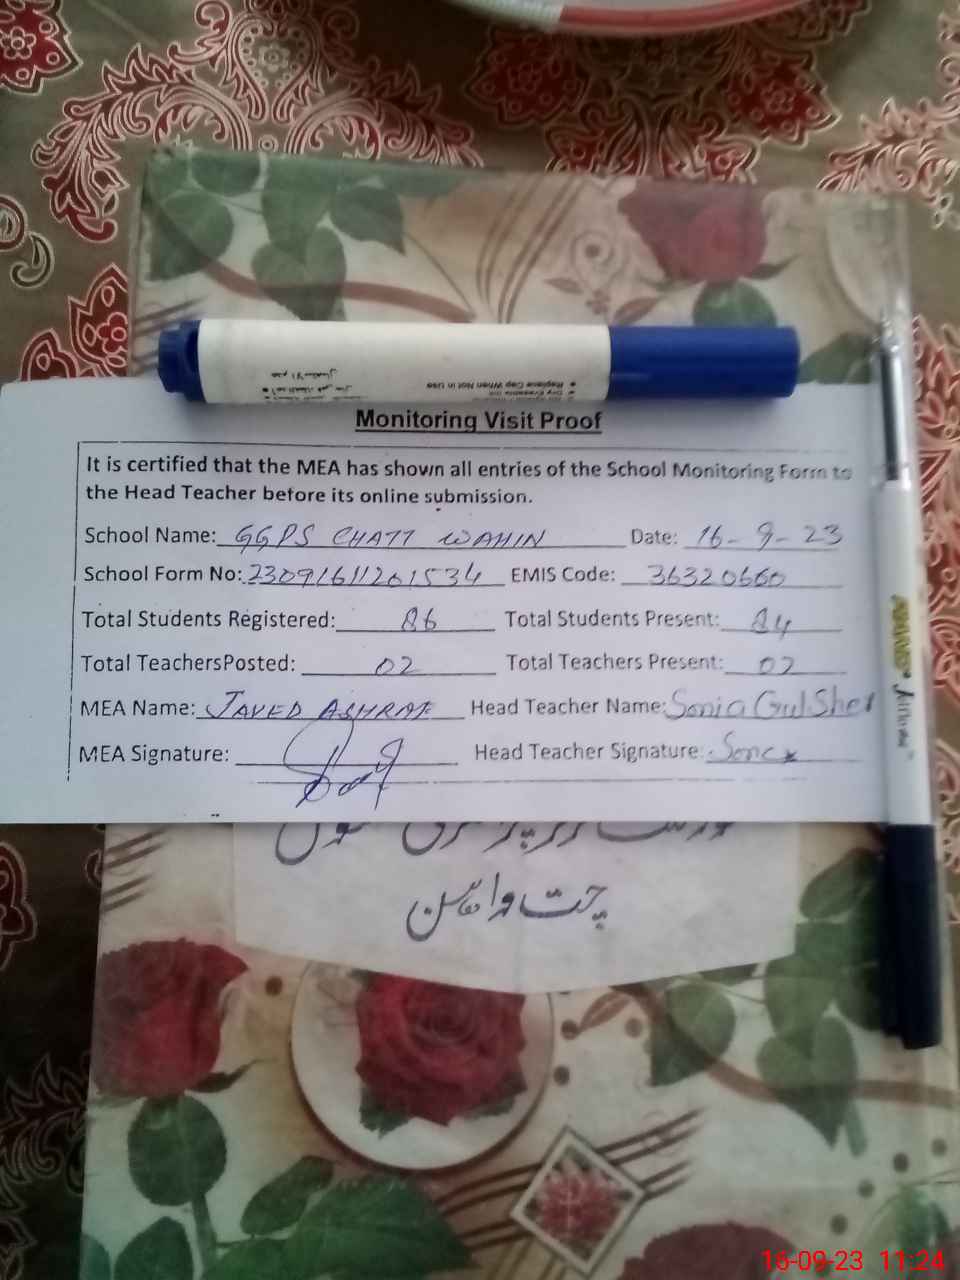 ● Dry Erasable Ink
● Replace Cap When Not in Use
Monitoring Visit Proof
It is certified that the MEA has shown all entries of the School Monitoring Form to
the Head Teacher before its online submission.
School Name: GGPS CHATT WAHIN Date: 16-9-23
School Form No: 23091611201534 EMIS Code: 36320660
Total Students Registered: 86 Total Students Present: 84
Total TeachersPosted: 02 Total Teachers Present: 02
MEA Name: JAVED ASHRAF Head Teacher Name: Sonia Gul Sher
MEA Signature: Head Teacher Signature:
چت واہن
16-09-23 11:24